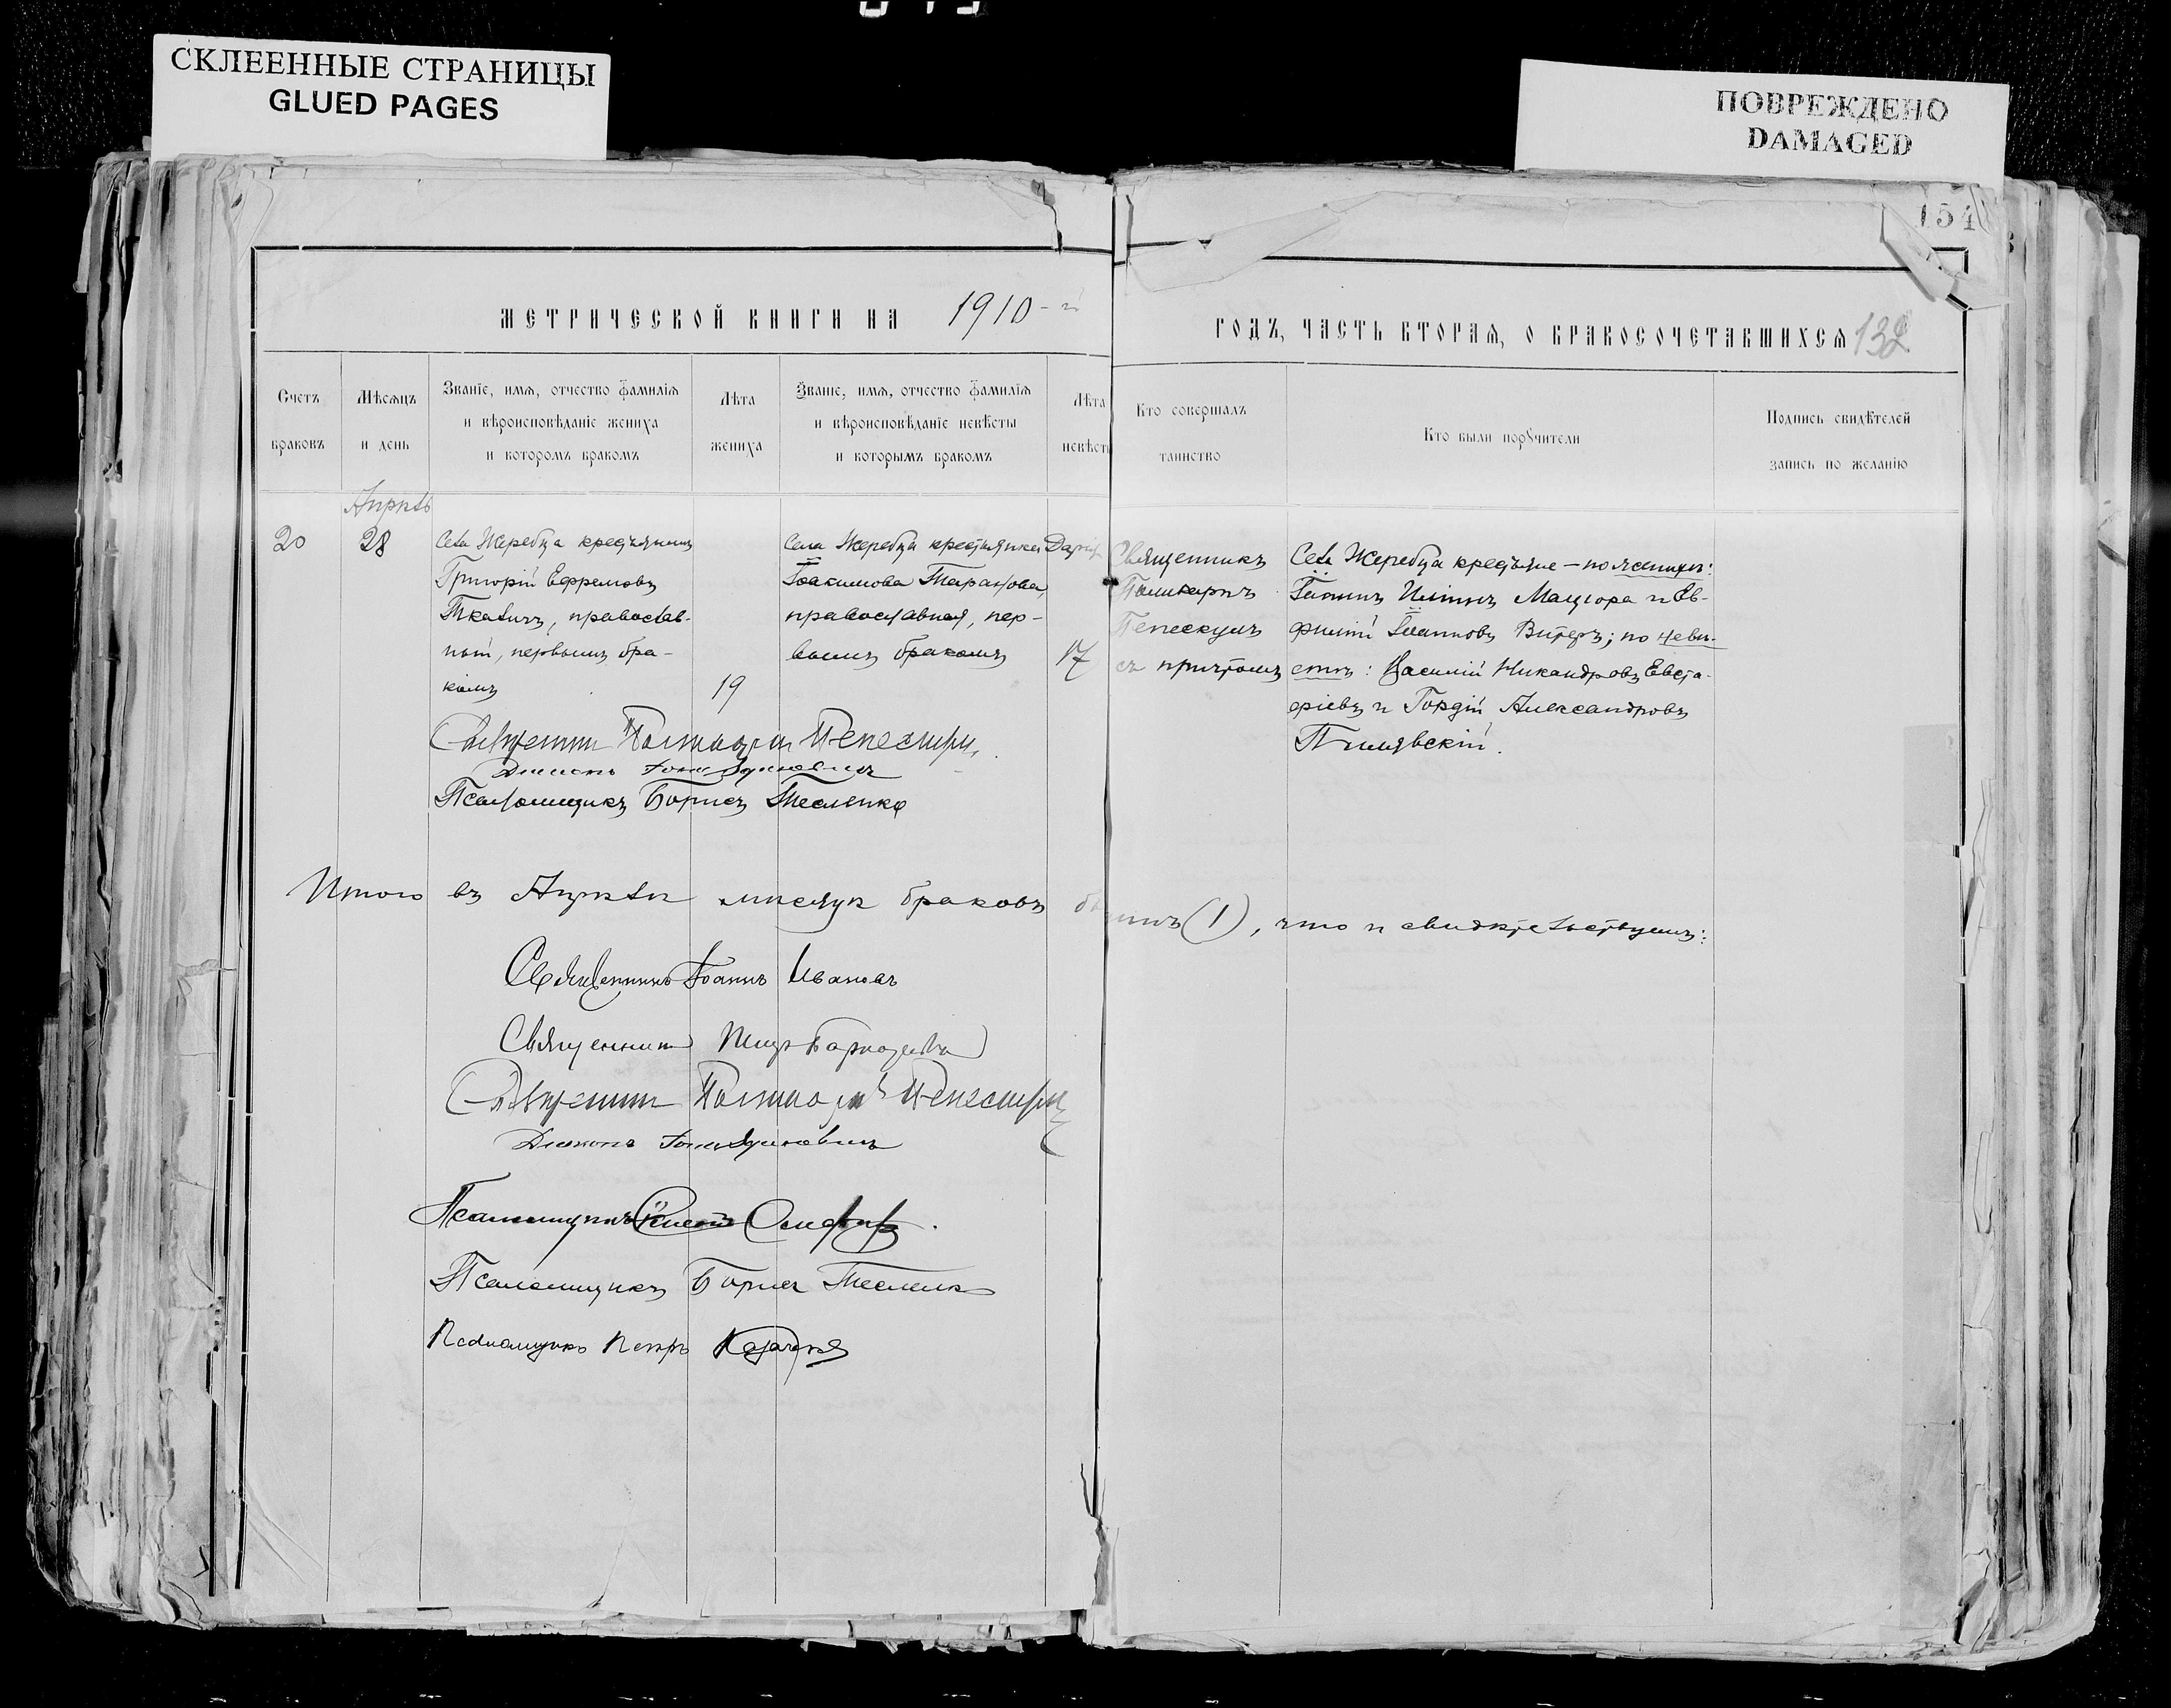 СКЛЕЕННЫЕ СТРАНИЦЫ
GLUED PAGES
ПОВРЕЖДЕНО
DAMAGED
154
МЕТРИЧЕСКОЙ КНИГИ НА 1910-й
ГОДЪ, ЧАСТЬ ВТОРАЯ, О БРАКОСОЧЕТАВШИХСЯ 132
Счетъ
браковъ
Мѣсяцъ
и день
Званіе, имя, отчество фамилія
и вѣроисповѣданіе жениха
и которомъ бракомъ
Лѣта
жениха
Званіе, имя, отчество фамилія
и вѣроисповѣданіе невѣсты
и которымъ бракомъ
Лѣта
невѣсты
Кто совершалъ
таинство
Кто были поручители
Подпись свидѣтелей
запись по желанію
Апрѣль
20
28
Села Жеребца крестьянинъ
Григорій Ефремовъ
Ткаличъ, православ-
ный, первымъ бра-
комъ
19
Села Жеребца крестьянка Дарія
Іоакимова Таранова,
православная, пер-
вымъ бракомъ
17
Священникъ
Поликарпъ
Пепескулъ
съ причтомъ
Села Жеребца крестьяне – по женихѣ:
Іоаннъ Илiинъ Мацюра и Ев-
фимій Іоанновъ Витеръ; по невѣ-
стѣ: Василій Никандровъ Евста-
фіевъ и Гордій Александровъ
Пилявскій.
Священникъ Поликарпъ
Діаконъ
Псаломщикъ Борисъ Тесленко
Итого въ Апрѣлѣ мѣсяцѣ браковъ былъ (1), что и свидѣтельствуемъ:
Священникъ Іоаннъ Ивановъ
Священникъ
Священникъ Поликарпъ
Діаконъ
Псаломщикъ
Псаломщикъ Борисъ Тесленко
Псаломщикъ Петръ